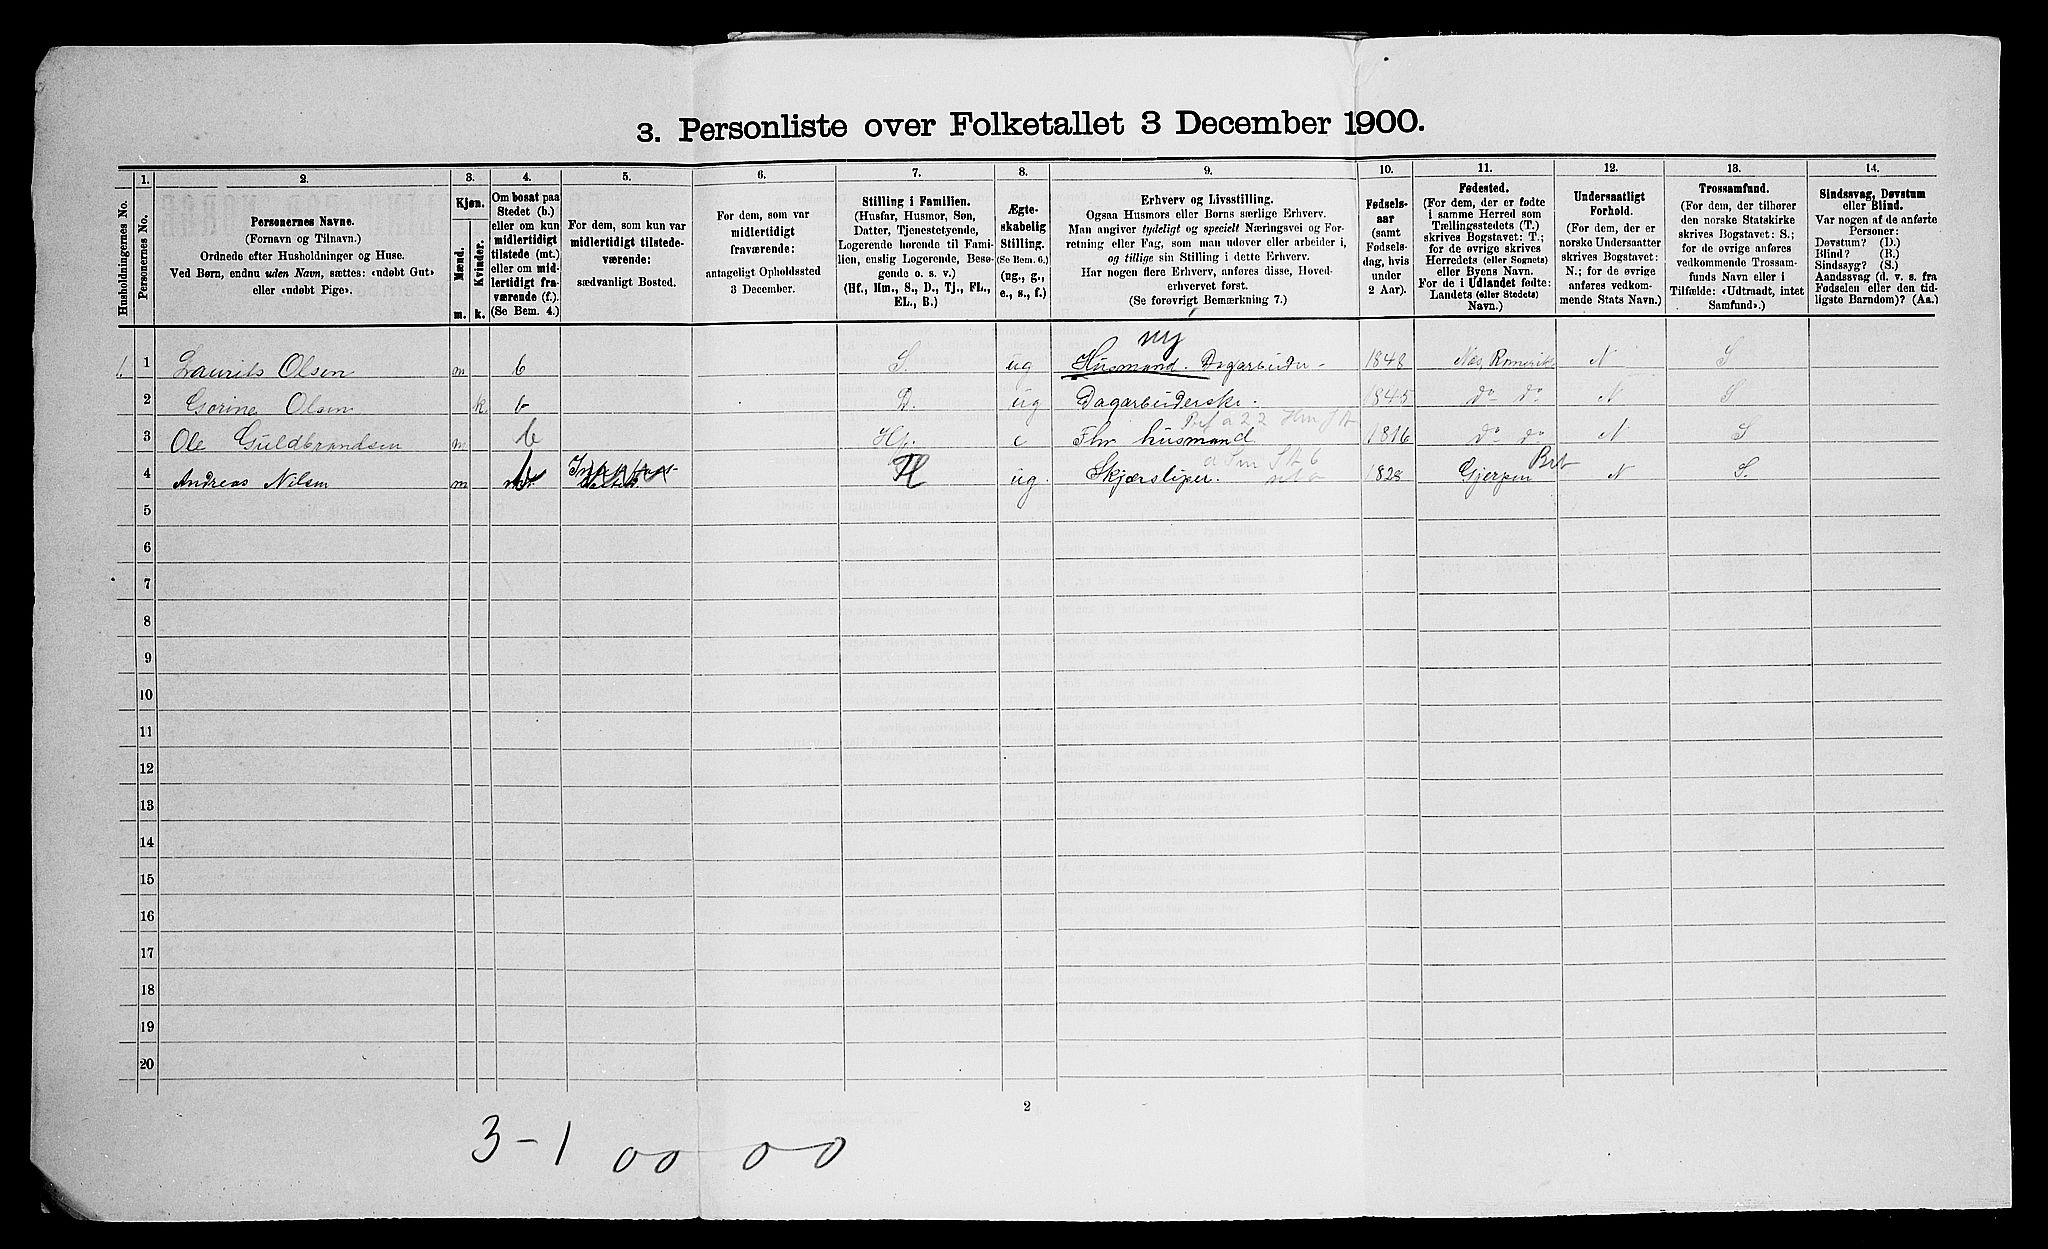 3. Personliste over Folketallet 3 December 1900.
1. 2. 3. 4. 5. 6. 7. 8. 9. 10. 11. 12. 13. 14.
Husholdningernes No.
Personernes No.
Personernes Navne.
(Fornavn og Tilnavn.)
Ordnede efter Husholdninger og Huse.
Ved Børn, endnu uden Navn, sættes: «udøbt Gut»
eller «udøbt Pige».
Kjøn.
Mænd.
Kvinder.
m. k.
Om bosat paa
Stedet (b.)
eller om kun
midlertidigt
tilstede (mt.)
eller om mid-
lertidigt fra-
værende (f.).
(Se Bem. 4.)
For dem, som kun var
midlertidigt tilstede-
værende:
sædvanligt Bosted.
For dem, som var
midlertidigt
fraværende:
antageligt Opholdssted
3 December.
Stilling i Familien.
(Husfar, Husmor, Søn,
Datter, Tjenestetyende,
Logerende hørende til Fami-
lien, enslig Logerende, Besø-
gende o. s. v.)
(Hf., Hm., S., D., Tj., FL.,
EL., B.)
Ægte-
skabelig
Stilling.
(Se Bem. 6.)
(ug., g.,
e., s., f.)
Erhverv og Livsstilling.
Ogsaa Husmors eller Børns særlige Erhverv.
Man angiver tydeligt og specielt Næringsvei og For-
retning eller Fag, som man udøver eller arbeider i,
og tillige sin Stilling i dette Erhverv.
Har nogen flere Erhverv, anføres disse, Hoved-
erhvervet først.
(Se forøvrigt Bemærkning 7.)
Fødsels-
aar
(samt
Fødsels-
dag, hvis
under
2 Aar).
Fødested.
(For dem, der er fødte
i samme Herred som
Tællingsstedets (T.)
skrives Bogstavet: T.;
for de øvrige skrives
Herredets (eller Sognets)
eller Byens Navn.
For de i Udlandet fødte:
Landets (eller Stedets)
Navn.)
Undersaatligt
Forhold.
(For dem, der er
norske Undersaatter
skrives Bogstavet:
N.; for de øvrige
anføres vedkom-
mende Stats Navn.)
Trossamfund.
(For dem, der tilhører
den norske Statskirke
skrives Bogstavet: S.;
for de øvrige anføres
vedkommende Trossam-
funds Navn eller i
Tilfælde: «Udtraadt, intet
Samfund».)
Sindssvag, Døvstum
eller Blind.
Var nogen af de anførte
Personer:
Døvstum? (D.)
Blind? (B.)
Sindssyg? (S.)
Aandssvag (d. v. s. fra
Fødselen eller den tid-
ligste Barndom)? (Aa.)
1. 1 Laurits Olsen m b S. ug Husmand. Dagarbeider 1848 Næs Romerike N S
2 Gorine Olsen k. b D. ug Dagarbeiderske. 1845 do do N S
3 Ole Guldbrandsen m b Hf. e Fhv husmand 1816 do do N S
4 Andreas Nilsen m ug. Skjærsliper. 1828 Gjerpen Brt N S.
5
6
7
8
9
10
11
12
13
14
15
16
17
18
19
20
2
3-1 00 00